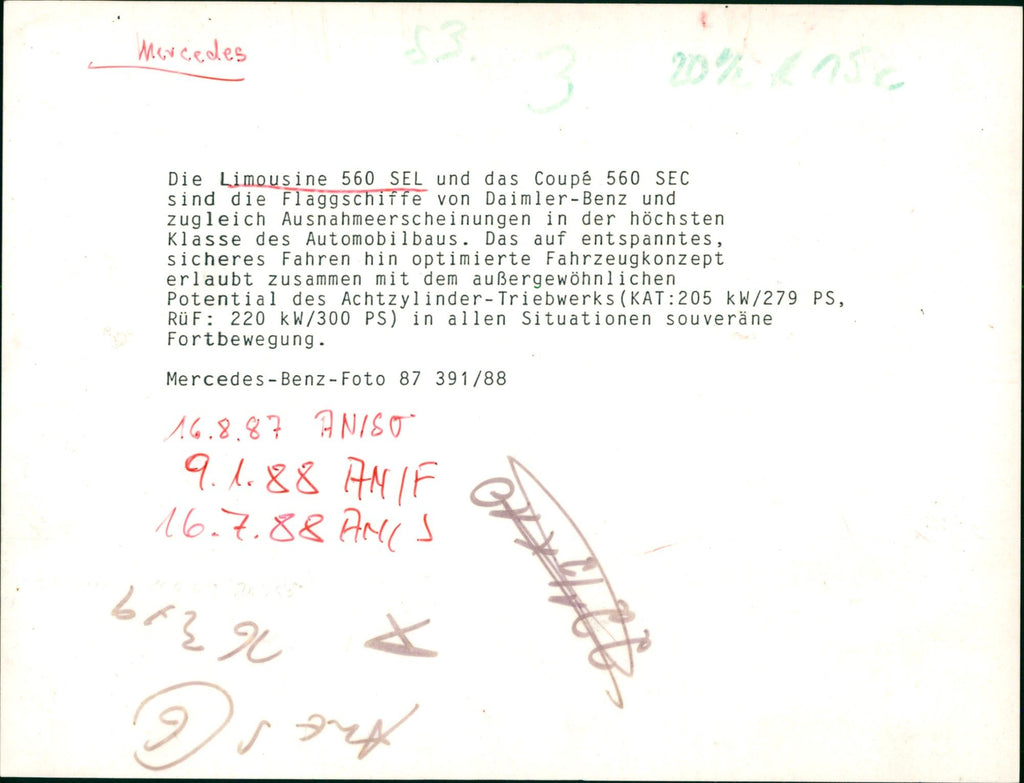 Mercedes
53.
3
Die Limousine 560 SEL und das Coupé 560 SEC
sind die Flaggschiffe von Daimler-Benz und
zugleich Ausnahmeerscheinungen in der höchsten
Klasse des Automobilbaus. Das auf entspanntes,
sicheres Fahren hin optimierte Fahrzeugkonzept
erlaubt zusammen mit dem außergewöhnlichen
Potential des Achtzylinder-Triebwerks(KAT:205 kW/279 PS,
RüF: 220 kW/300 PS) in allen Situationen souveräne
Fortbewegung.
Mercedes-Benz-Foto 87 391/88
16.8.87
9.1.88 AM/F
16.7.88